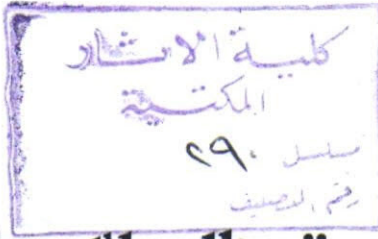 كلية الآثار
المكتبة
مسلسل ٢٩٠
رقم التصنيف